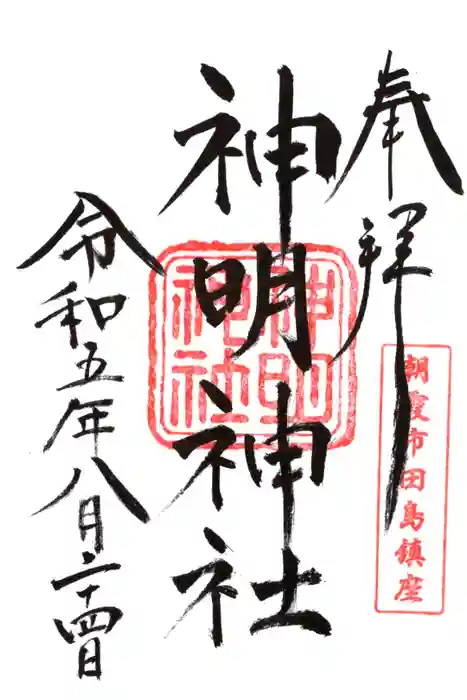 奉拝
朝霞市田島鎮座
神明神社
神明
神社
令和五年八月二十四日